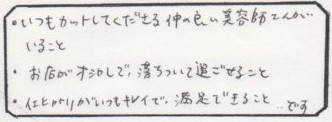 ・いつもカットしてくださる仲の良い美容師さんが
いること
・お店がオシャレで、落ちついて過ごせること
・仕上がりがいつもキレイで、満足できること…です